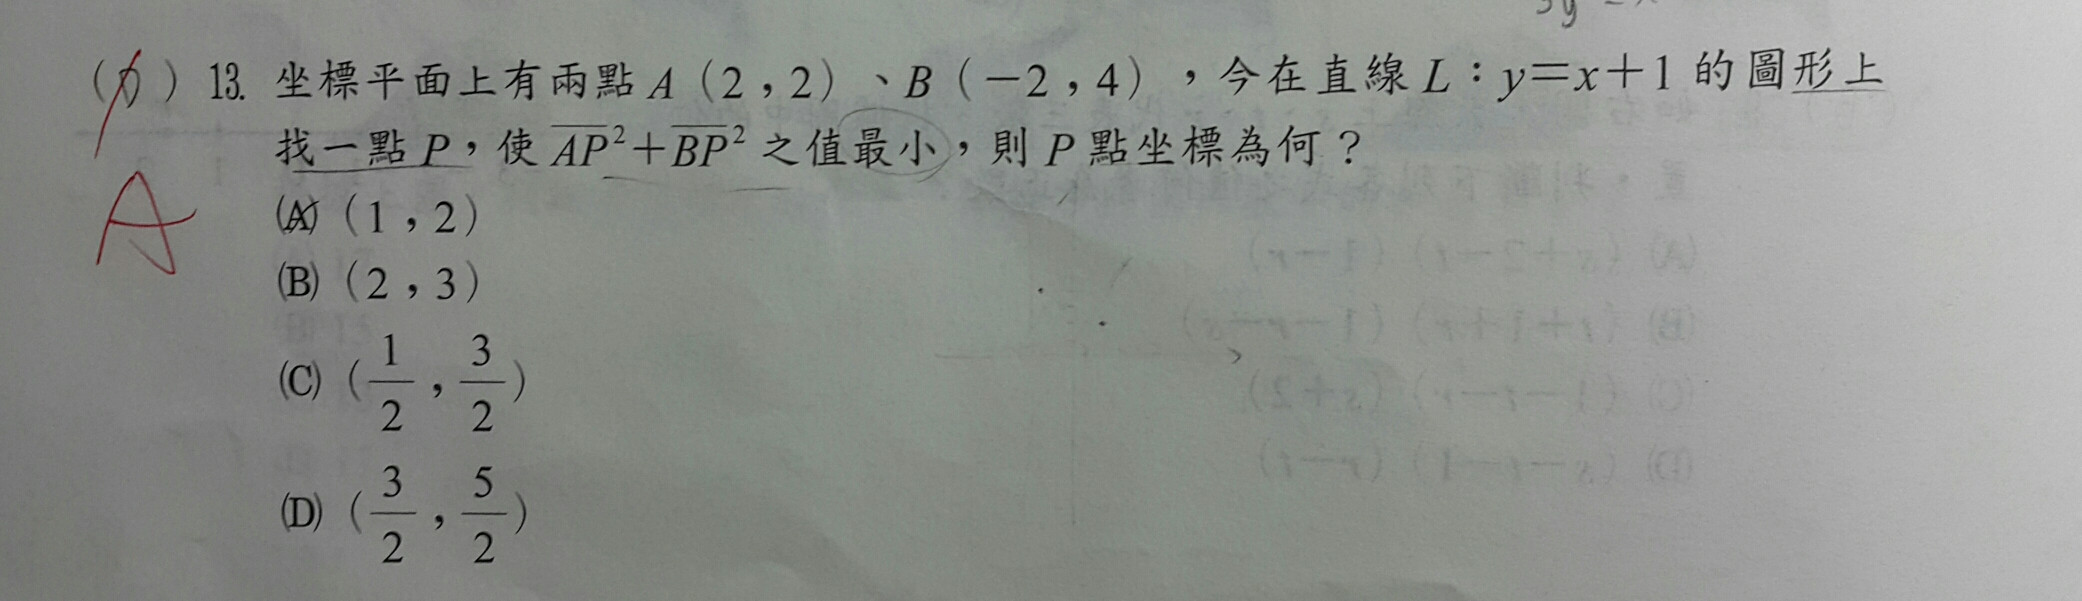 ( ) 13. 坐標平面上有兩點 A（2，2）、B（－2，4），今在直線 L：y＝x＋1 的圖形上
找一點 P，使 \overline{AP}²＋\overline{BP}² 之值最小，則 P 點坐標為何？
A
(A)（1，2）
(B)（2，3）
(C)（1/2，3/2）
(D)（3/2，5/2）